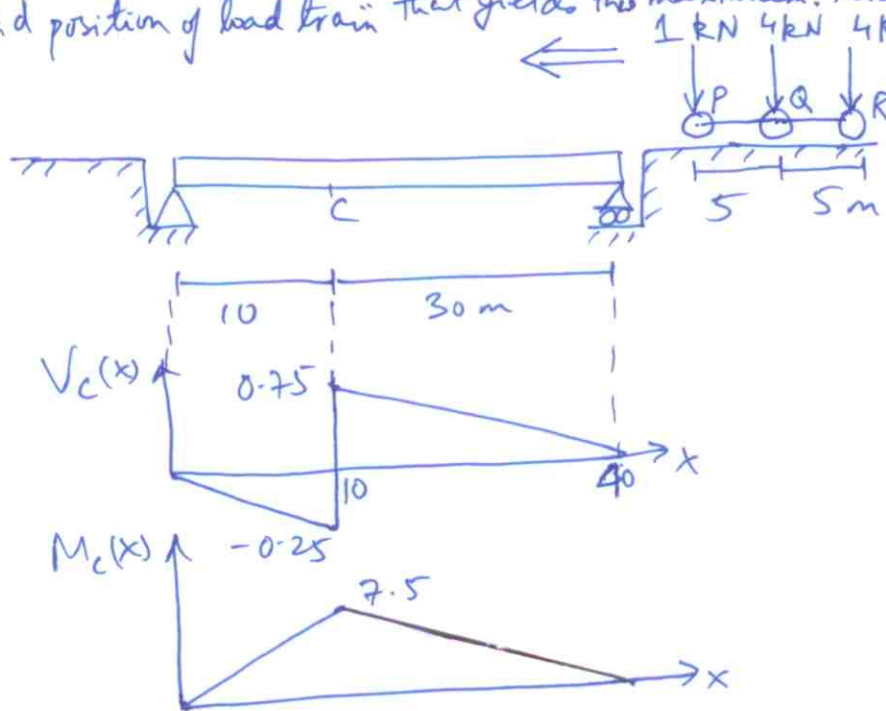 d position of load train that yields this maximum.
1 kN 4kN 4k
P Q R
C
5 5 m
10 30 m
Vc(x) 0.75
x
10 40
-0.25
Mc(x) 7.5
x